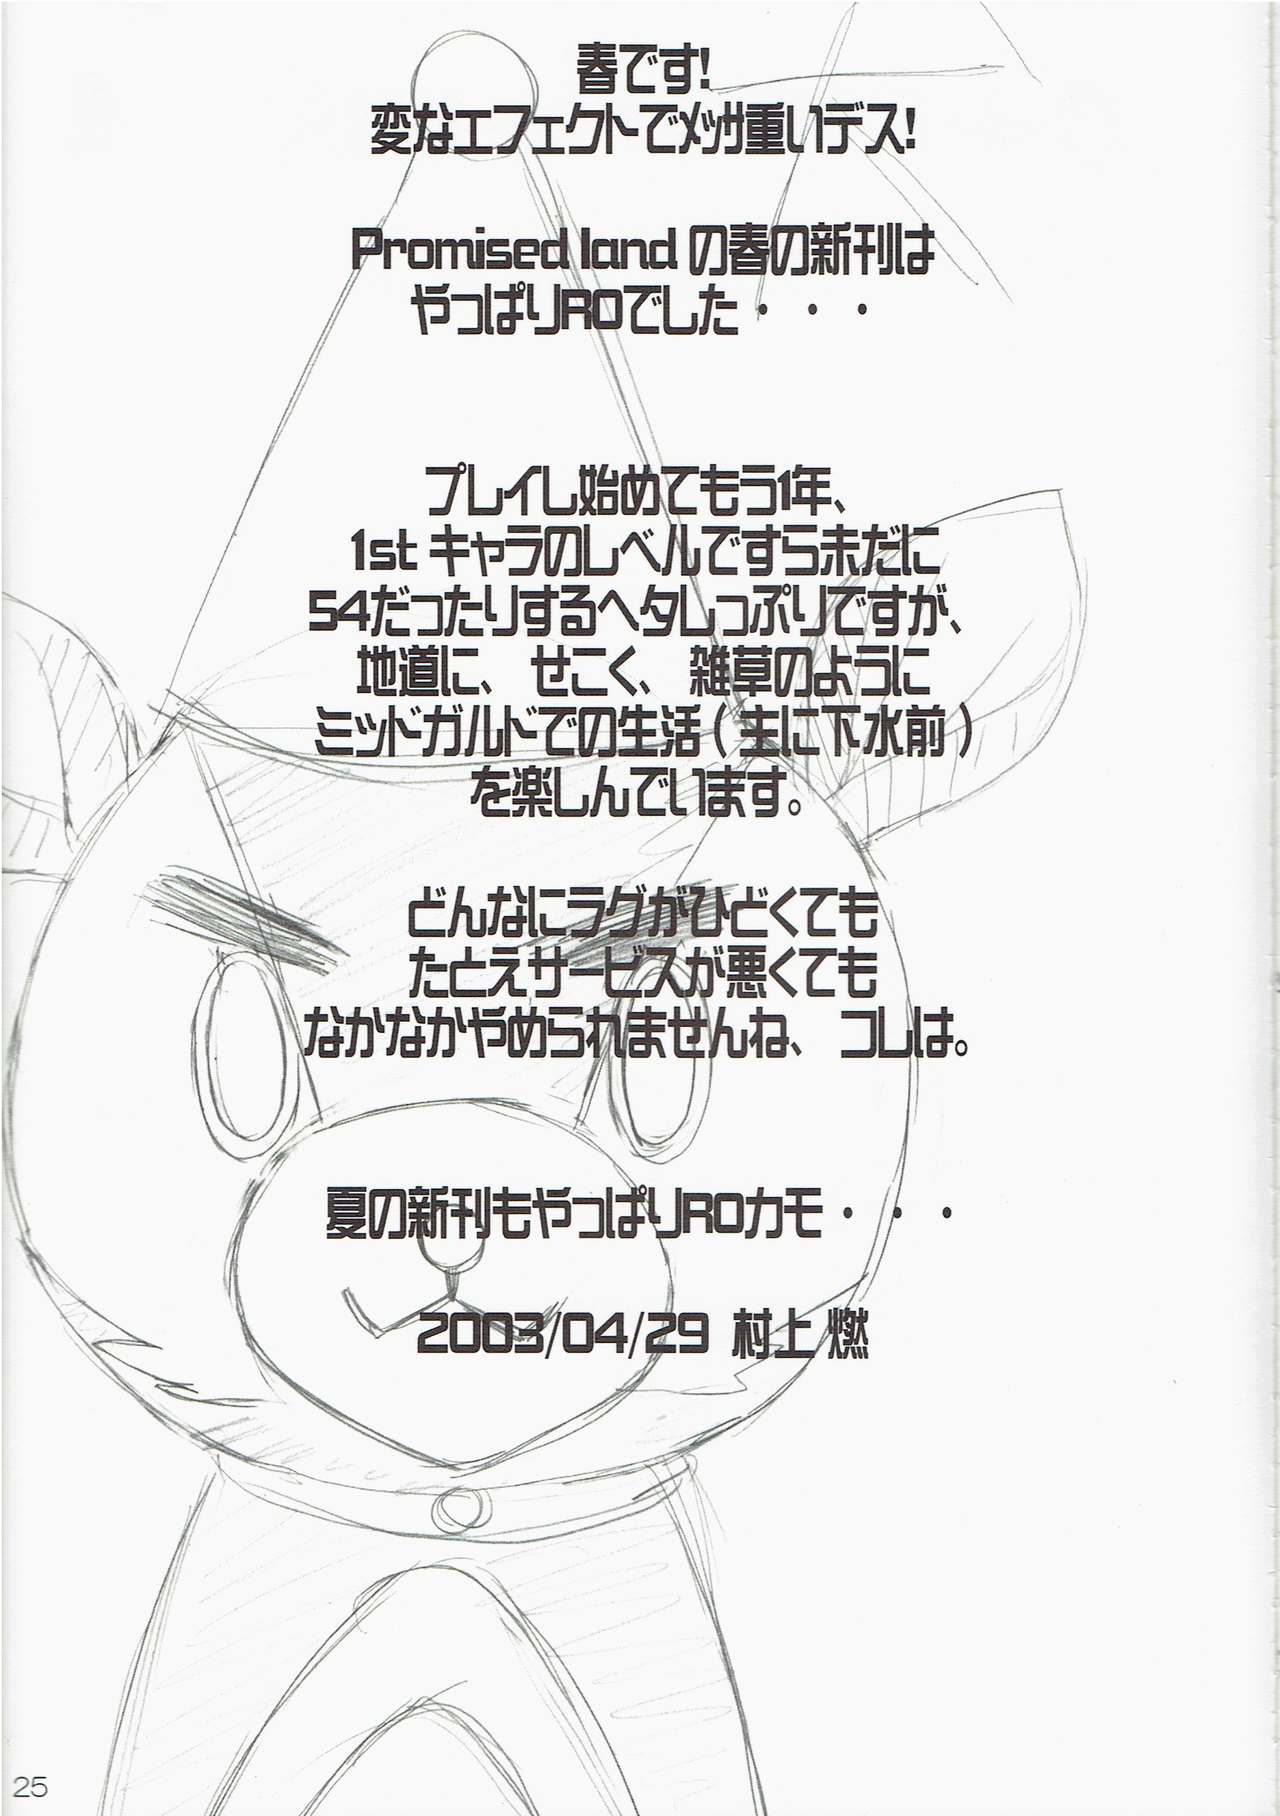 春です!
変なエフェクトでﾒｯｻ重いデス!
Promised land の春の新刊は
やっぱりROでした・・・
プレイし始めてもう1年、
1st キャラのレベルですら未だに
54だったりするヘタレっぷりですが、
地道に、せこく、雑草のように
ミッドガルドでの生活(主に下水前)
を楽しんでいます。
どんなにラグがひどくても
たとえサービスが悪くても
なかなかやめられませんね、コレは。
夏の新刊もやっぱりROカモ・・・
2003/04/29 村上 燃
25